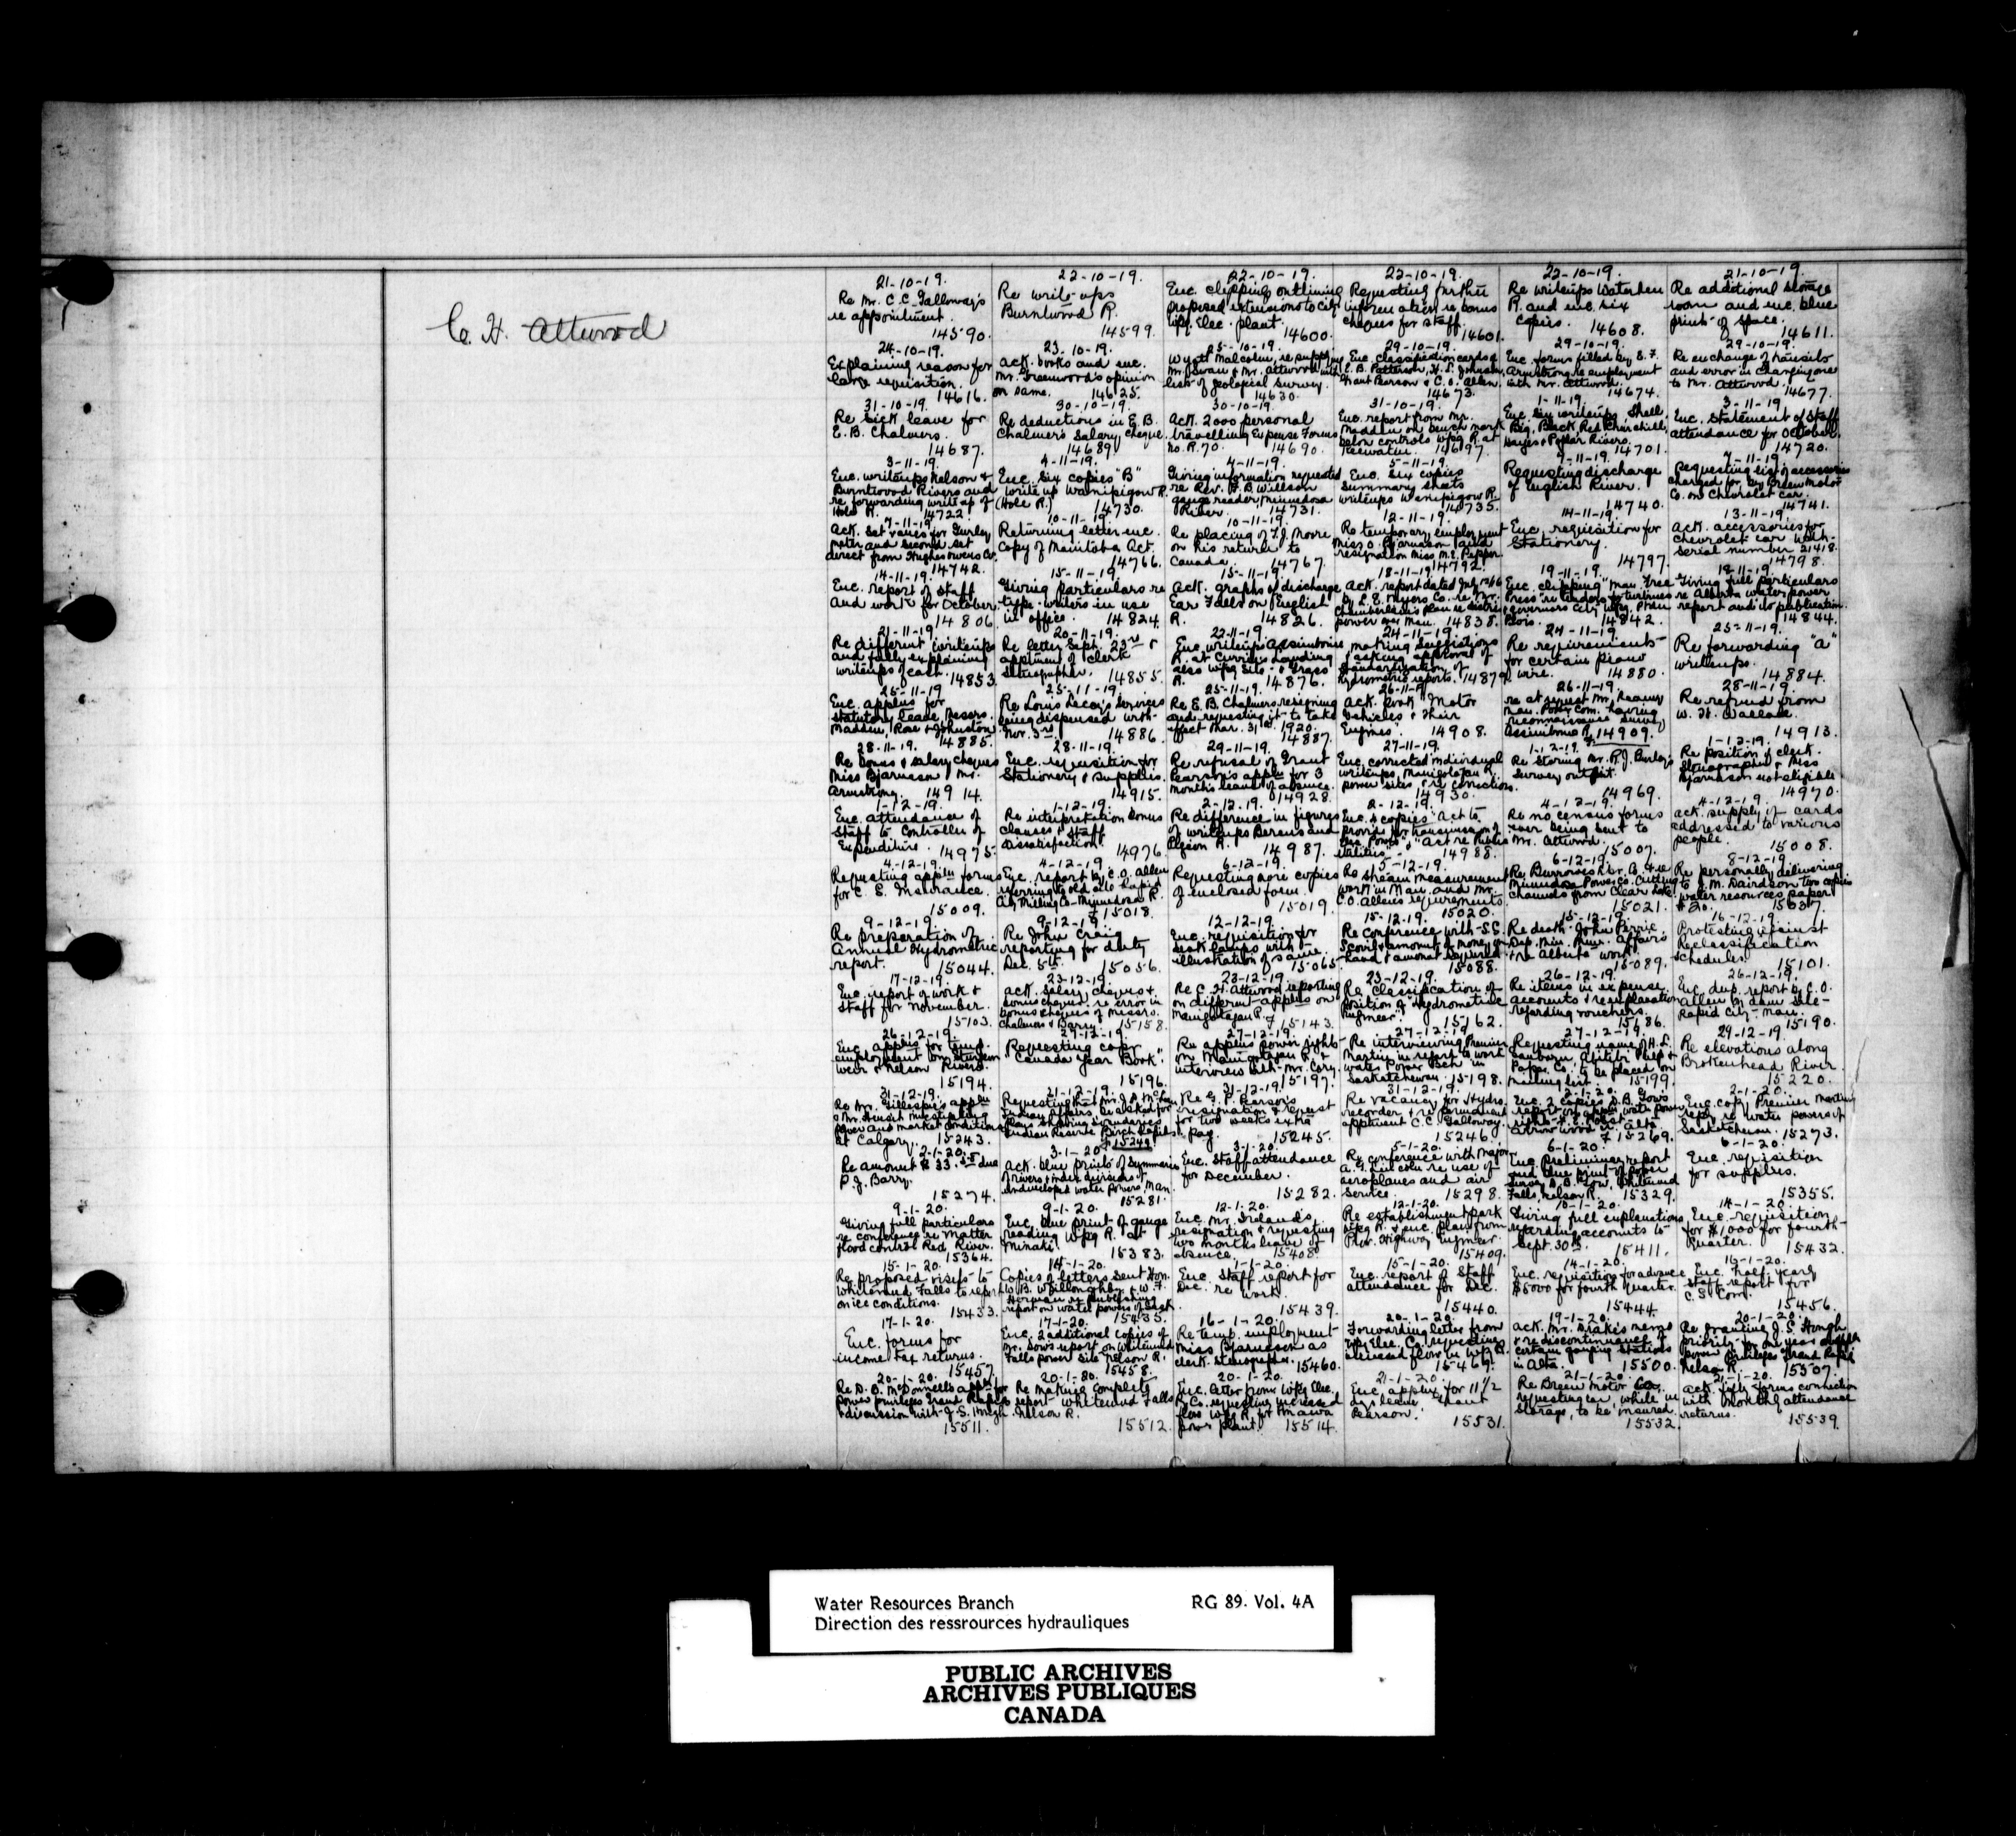 C. H. Attwood
21-10-19.
Re Mr. C. C. Galloway's
re appointment.
14590.
22-10-19.
Re write-ups
Burntwood R.
14599.
22-10-19.
Enc. clipping outlining
proposed extensions to City
Wpg. Elec. plant.
14600.
22-10-19.
Requesting further
information re bonus
cheques for staff.
14601.
22-10-19.
Re writeups Waterhen
R. and enc. six
copies. 14608.
21-10-19.
Re additional storage
room and enc. blue
print of space.
14611.
24-10-19.
Explaining reason for
large requisition.
14616.
23-10-19.
Ack. books and enc.
Mr. Greenwood's opinion
on same. 14625.
25-10-19.
Wyatt Malcolm, re supplying
Mr. Swan & Mr. Attwood with
list of geological survey.
14630.
29-10-19.
Enc. classification cards of
E. B. Patterson, H. L. Johnson,
Grant Pearson & C. O. Allen.
14673.
29-10-19.
Enc. forms filled by S. F.
Armstrong re employment
with Mr. Attwood.
14674.
29-10-19.
Re exchange of transits
and error in changing one
to Mr. Attwood.
14677.
31-10-19.
Re sick leave for
E. B. Chalmers.
14687.
30-10-19.
Re deductions in E. B.
Chalmer's salary cheque.
14689
30-10-19.
Ack. 2000 personal
travelling Expense Forms
No. R. 70. 14690.
31-10-19.
Enc. report from Mr.
Madden on bench mark
below controls Wpg R. at
Keewatin. 14697.
1-11-19.
Enc. six writeups Shell,
Big, Black, Red, Churchill,
Hayes & Poplar Rivers.
14701.
3-11-19
Enc. Statement of Staff
attendance for October.
14720.
3-11-19.
Enc. writeups Nelson &
Burntwood Rivers and
re forwarding write up of
Hole R. 14722
4-11-19.
Enc. six copies "B"
write up Wanipigow R.
(Hole R.) 14730.
4-11-19.
Giving information requested
re Rev. A. B. Willson
gauge reader, Minnedosa
River. 14731.
5-11-19.
Enc. six copies
summary sheets
writeups Wanipigow R.
14735.
7-11-19.
Requesting discharge
of English River.
14740.
7-11-19.
Requesting list of accessories
charged for by Breen Motor
Co. on Chevrolet car.
14741.
7-11-19.
Ack. set vanes for Gurley
meter and second set
direct from Hughes Owens Co.
14742.
10-11-19.
Returning letter enc.
copy of Manitoba Act.
14766.
10-11-19.
Re placing of T. J. Moore
on his return to
Canada. 14767.
12-11-19.
Re temporary employment
Miss O. Bjarnason and
resignation Miss M. E. Pepper.
14792.
14-11-19
Enc. requisition for
Stationery.
14797.
13-11-19.
Ack. accessories for
Chevrolet car with
serial number 21418.
14798.
14-11-19.
Enc. report of staff
and work for October.
14806
15-11-19.
Giving particulars re
type-writers in use
in office. 14824.
15-11-19.
Ack. graphs of discharge
Ear Falls on English
R. 14826.
18-11-19
Ack. report dated July
by L. E. Myers Co. re Mr.
Chamberlain's plan re distri
power over Man. 14838.
19-11-19.
Enc. clipping "Man. Free
Press" re tenders for turbines
& governors City Wpg. Pt. du
Bois. 14842.
19-11-19.
Giving full particulars
re Alberta water power
report and its publication.
14844.
21-11-19
Re different writeups
and fully explaining
writeups of each. 14853.
20-11-19.
Re letter Sept. 23rd &
apptment of clerk
Stenographer. 14855.
22-11-19.
Enc. writeups Assiniboine
R. at Currie's Landing
also Wpg Site & Grass
R. 14876.
24-11-19.
Making suggestions
& asking approval of
standardization of
hydrometric reports. 14879
24-11-19.
Re requirements
for certain piano
wire. 14880.
25-11-19.
Re forwarding "A"
writeups.
14884.
25-11-19
Enc. applns for
statutory leave Messrs.
Madden, Rose & Johnston
14885.
25-11-19.
Re Louis Lacey's services
being dispensed with
Nov. 3rd. 14886.
25-11-19.
Re E. B. Chalmers resigning
and requesting it to take
effect Mar. 31st 1920.
14887.
26-11-19
Ack. book "Motor
Vehicles & Their
Engines". 14908.
26-11-19.
re at request Mr. Leamy
Man. Power Com. having
reconnaissance survey
Assiniboine R. 14909.
28-11-19.
Re refund from
W. H. Wallace.
14913.
28-11-19.
Re bonus & salary cheques
Miss Bjarnason & Mr.
Armstrong. 14914.
28-11-19.
Enc. requisition for
Stationery & supplies.
14915.
29-11-19.
Re refusal of Grant
Pearson's appln for 3
months leave of absence.
14928.
27-11-19.
Enc. corrected individual
writeups, Manigotagan R.
power sites & re corrections.
14930.
1-12-19.
Re storing Mr. R. J. Burley's
survey outfit.
14969.
1-12-19.
Re position of clerk.
Stenographer & Miss
Bjarnason not eligible
14970.
1-12-19.
Enc. attendance of
staff to Controller of
Expenditure. 14975.
1-12-19.
Re interpretation bonus
clauses & staff
dissatisfaction.
14976.
2-12-19.
Re difference in figures
of writeups Berens and
Pigeon R. 14987.
2-12-19.
Enc. 4 copies "Act to
provide for transmission of
Elec. Power" & "Act re Public
Utilities". 14988.
4-12-19.
Re no census forms
ever being sent to
Mr. Attwood. 15007.
4-12-19.
Ack. supply of cards
addressed to various
people. 15008.
4-12-19.
Requesting appln forms
for C. S. Insurance.
15009.
4-12-19.
Enc. report by C. O. Allen
referring to old site Rapid
City Milling Co-Minnedosa R.
15018.
6-12-19.
Requesting more copies
of enclosed form.
15019.
5-12-19.
Re stream measurement
work in Man. and Mr.
C. O. Allen's requirements.
15020.
6-12-19.
Re Burrows Lbr. Co. & re
Minnedosa Power Co. cutting
channels from Clear Lake
15021.
8-12-19.
Re personally delivering
to J. M. Davidson two copies
water resources paper
#20. 15037.
9-12-19.
Re preparation of
Annual Hydrometric
report. 15044.
9-12-19.
Re John Craig
reporting for duty
Dec. 5th. 15056.
12-12-19
Enc. requisition for
desk lamps with
illustration of same.
15065.
15-12-19.
Re conference with S.C.
Scovil & amount of money on
hand & amount required.
15088.
15-12-19.
Re death John Pernie
Dep. Min. Mun. Affairs
& re Alberta work.
15089.
16-12-19.
Protesting against
Reclassification
schedules. 15101.
17-12-19.
Enc. report of work &
staff for November.
15103.
23-12-19.
Ack. salary cheques &
bonus cheques & re error in
bonus cheques of Messrs.
Chalmers & Barry. 15158.
23-12-19.
Re C. H. Attwood reporting
on different applns on
Manigotagan R. 15143.
23-12-19.
Re Classification of
position of "Hydrometric
Engineer". 15162.
26-12-19.
Re items in expense
accounts & re explanation
regarding vouchers.
15186.
26-12-19.
Enc. dup. report by C. O.
Allen by dam site-
Rapid City-Man.
15190.
26-12-19
Enc. applns for temp.
employment on Sturgeon
weir & Nelson Rivers.
15194.
29-12-19
Requesting copy
"Canada Year Book".
15196.
27-12-19.
Re applns power rights
on Manigotagan R. &
interview with Mr. Cory.
15197.
27-12-19
Re interviewing Premier
Martin in regard to work
Water Power Bch in
Saskatchewan. 15198.
27-12-19.
Requesting name R. H. L.
Sanborn, Abitibi Pulp &
Paper Co. to be placed on
mailing list. 15199.
29-12-19
Re elevations along
Brokenhead River.
15220.
31-12-19.
Re Mr. Gillespie's appln
& Mr. Hewson investigating
power and market conditions
at Calgary. 15243.
31-12-19.
Requesting that Mr. J. D. McLean
Indian Affairs, be asked for
plans showing boundaries
Indian Reserve Birch Rapids.
15249.
31-12-19.
Re G. P. Pearson's
resignation & request
for two weeks extra
pay. 15245.
31-12-19.
Re vacancy for Hydro.
recorder & re permanent
apptment C. C. Galloway.
15246.
2-1-20.
Enc. 2 copies D. B. Gow's
report on appln water power
rights
Arrowwood R. Alta.
15269.
2-1-20.
Enc. copy Premier Martin's
reply re water powers of
Saskatchewan. 15273.
2-1-20.
Re amount $33.50 due
P. J. Barry.
15274.
3-1-20.
Ack. blue prints of Summaries
of rivers & index divisions of
undeveloped water powers, Man.
15281.
3-1-20.
Enc. Staff attendance
for December.
15282.
5-1-20.
Re conference with Major
A. G. Lincoln re use of
aeroplanes and air
Service. 15298.
6-1-20.
Enc. preliminary report
and blue print of power
survey D. B. Gow, Whitemud
Falls, Nelson R. 15329.
6-1-20.
Enc. requisition
for supplies.
15355.
9-1-20.
Giving full particulars
re conference re matter
flood control Red River.
15364.
9-1-20.
Enc. blue print of gauge
reading Wpg R. at
Minaki. 15383.
12-1-20.
Enc. Mr. Ireland's
resignation & requesting
two months leave of
absence. 15408.
12-1-20.
Re establishment park
Wpg R. & enc. plan from
Prov. Highway Engineer.
15409.
10-1-20.
Giving full explanations
regarding accounts to
Sept. 30th. 15411.
14-1-20.
Enc. requisition
for $1,000 for fourth
Quarter. 15432.
15-1-20.
Re proposed visits to
Whitemud Falls to report
on ice conditions.
15433.
14-1-20.
Copies of letters sent Hon.
W. B. Willoughby & W. F.
Herman re publishing
report on water powers of Sask.
15435.
1-1-20.
Enc. Staff report for
Dec. re work.
15439.
15-1-20.
Enc. report of Staff
attendance for Dec.
15440.
14-1-20.
Enc. requisition for advance
$5000 for fourth quarter.
15444.
16-1-20.
Enc. half yearly
staff report for
C. S. Com.
15456.
17-1-20.
Enc. forms for
income tax returns.
15457.
17-1-20.
Enc. 2 additional copies of
Mr. Gow's report on Whitemud
Falls power site Nelson R.
15458.
16-1-20.
Re temp. employment
Miss Bjarnason as
clerk. stenographer. 15460.
20-1-20.
Forwarding letter from
Wpg Elec. Co. requesting
increased flow in Wpg R.
15469.
19-1-20.
Ack. Mr. Drake's memo
& re discontinuance of
certain gauging stations
in Alta. 15500.
20-1-20.
Re granting J. S. Hough
priority for one year
power privileges Grand Rapid
Nelson R. 15507.
20-1-20.
Re D. B. McDonnell's appln for
power privileges Grand Rapids
& discussion with J. S. Hough
15511.
20-1-20.
Re making complete
report Whitemud Falls
Nelson R.
15512.
20-1-20.
Enc. letter from Wpg Elec.
R. Co. requesting increased
flow Wpg R. for Pinawa
power plant. 15514.
21-1-20.
Enc. appln for 11 1/2
days leave. Grant
Pearson.
15531.
21-1-20.
Re Breen Motor Co.
requesting car, while in
storage, to be insured.
15532.
21-1-20.
Ack. forms connection
with monthly attendance
returns. 15539.
Water Resources Branch RG 89. Vol. 4A
Direction des ressrources hydrauliques
PUBLIC ARCHIVES
ARCHIVES PUBLIQUES
CANADA